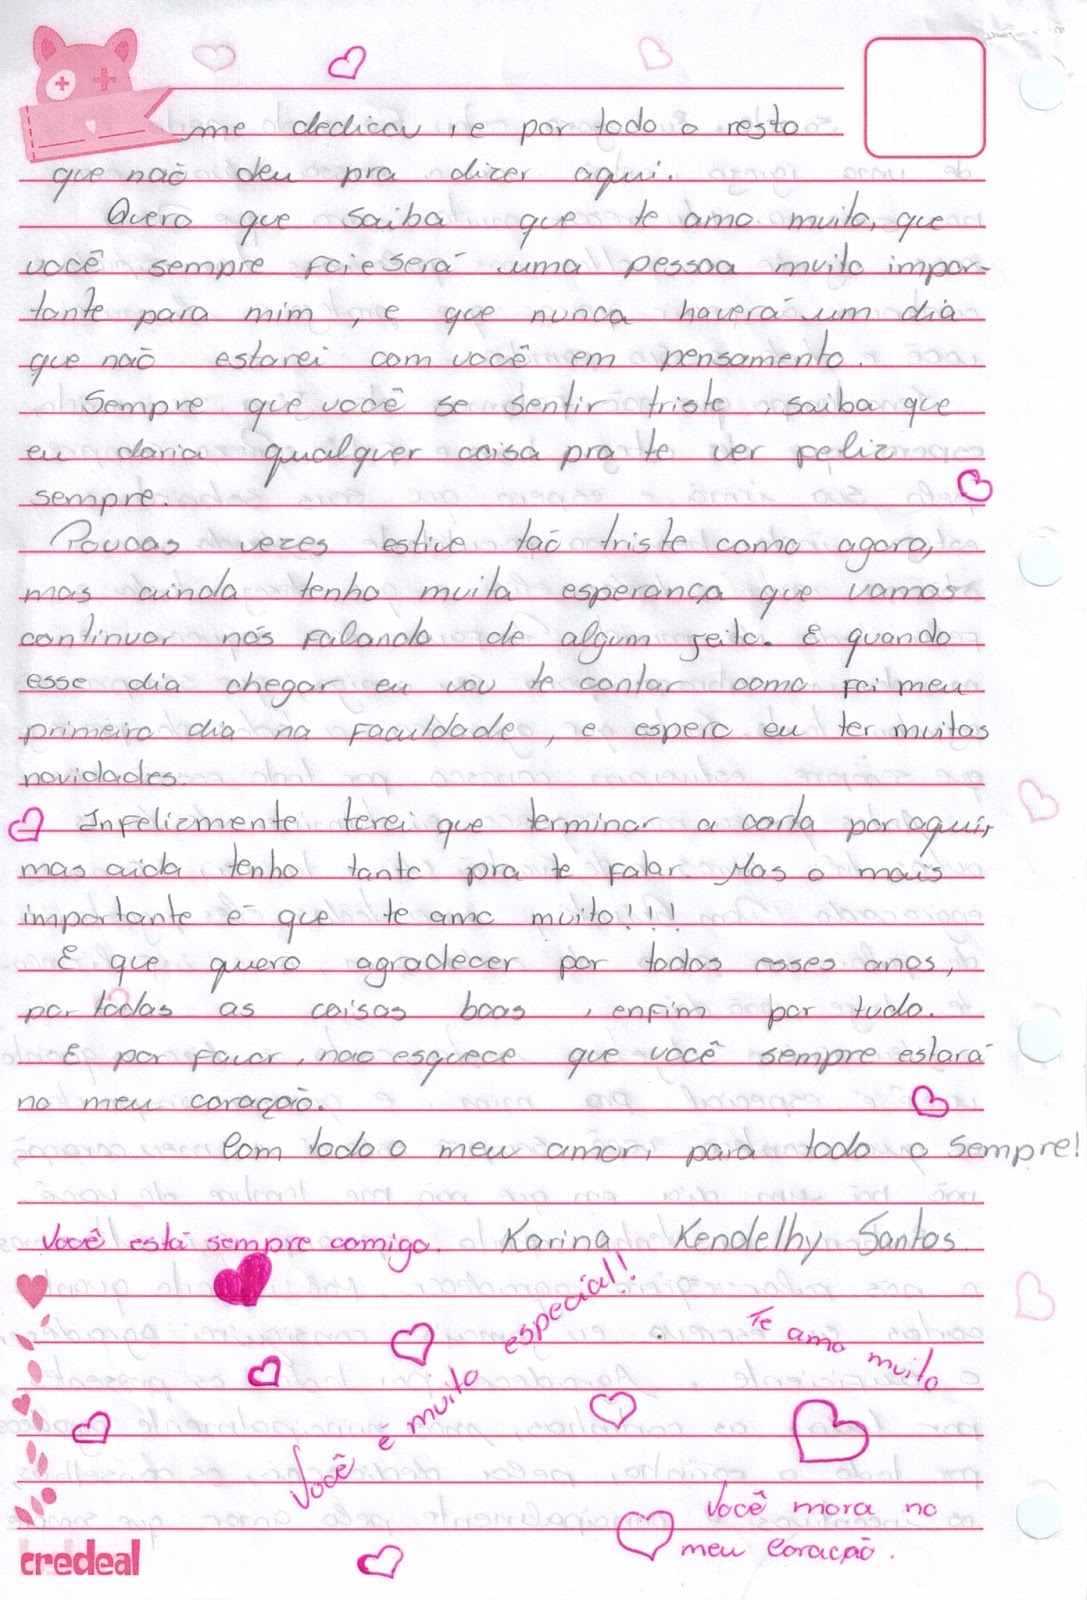 me dedicou, e por todo o resto
que não deu pra dizer aqui.
Quero que saiba que te amo muito, que
você sempre foi e será uma pessoa muito impor-
tante para mim, e que nunca haverá um dia
que não estarei com você em pensamento.
Sempre que você se sentir triste, saiba que
eu daria qualquer coisa pra te ver feliz
sempre.
Poucas vezes estive tão triste como agora,
mas ainda tenho muita esperança que vamos
continuar nós falando de algum jeito. E quando
esse dia chegar eu vou te contar como foi meu
primeiro dia na faculdade, e espero eu ter muitas
novidades.
Infelizmente terei que terminar a carta por aqui,
mas aida tenho tanto pra te falar. Mas o mais
importante é que te amo muito!!!
E que quero agradecer por todos esses anos,
por todas as coisas boas, enfim por tudo.
E por favor, nao esquece que você sempre estará
no meu coração.
Com todo o meu amor, para todo o sempre!
Você está sempre comigo. Karina Kendelhy Santos
Você é muito especial!!
Te amo muito
Você mora no
meu Coração.
credeal